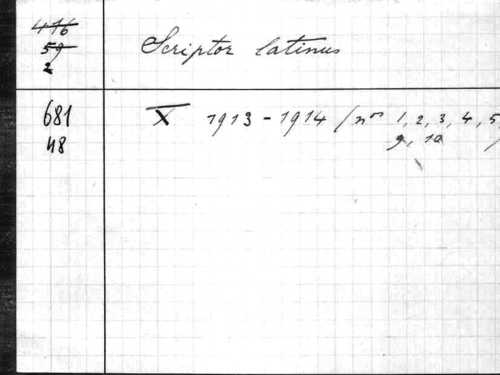 416
59
2
Scriptor latinus
681
48
X 1913-1914 (nos 1, 2, 3, 4, 5
9, 10